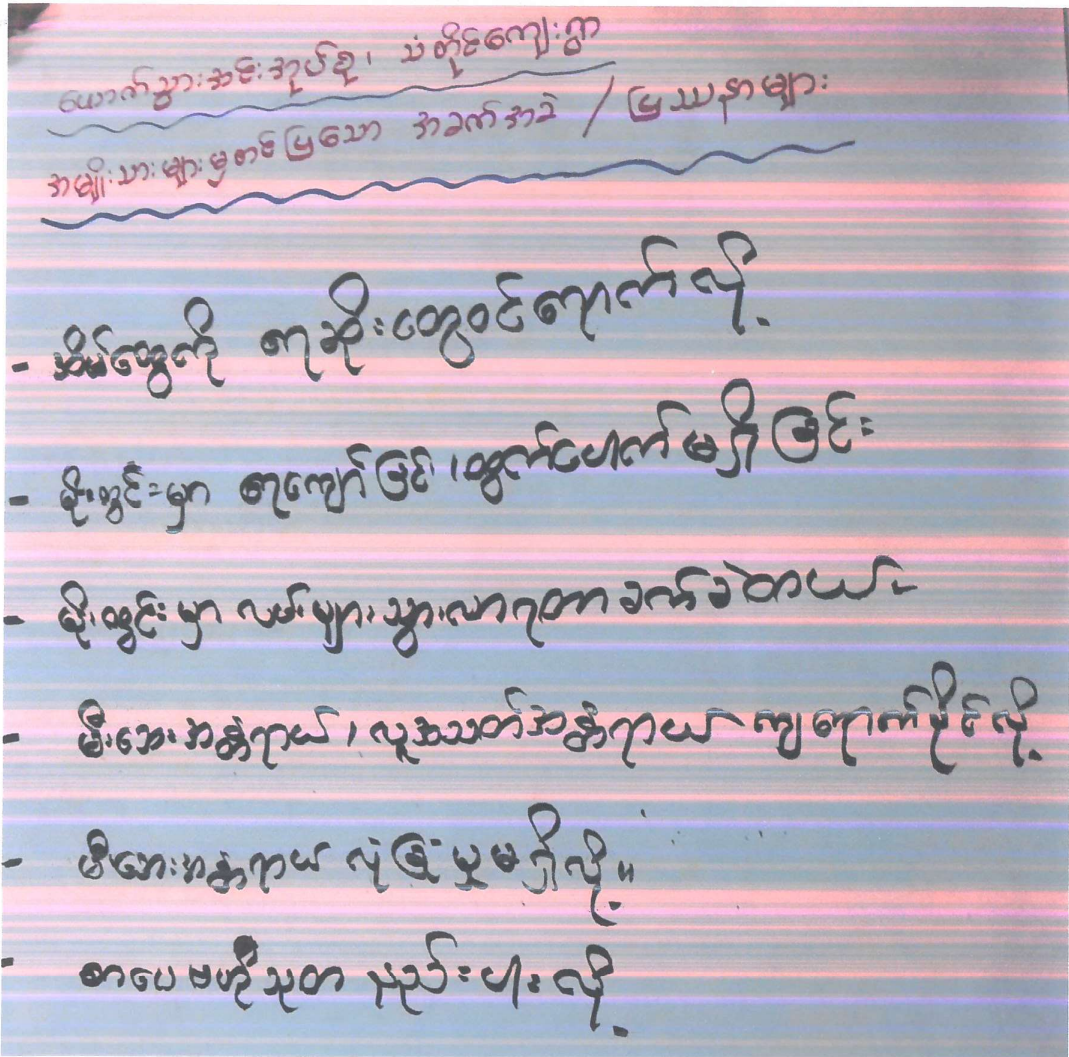 ယောက်သွားအင်းအုပ်စု၊ သံတိုင်ကျေးရွာ
အမျိုးသားများမှတင်ပြသော အခက်အခဲ / ပြဿနာများ
- အိမ်တွေကို ရေဆိုးတွေဝင်ရောက်လို့
- မိုးတွင်းမှာ ရေကျော်ခြင်း၊ ထွက်ပေါက်မရှိခြင်း
- မိုးတွင်းမှာ လမ်းများသွားလာရတာ ခက်ခဲတယ်
- မီးဘေးအန္တရာယ်၊ လူအသတ်အန္တရာယ် ကျရောက်နိုင်လို့
- မီးဘေးအန္တရာယ် လုံခြုံမှုမရှိလို့။
- စာပေဗဟုသုတ နည်းပါးလို့